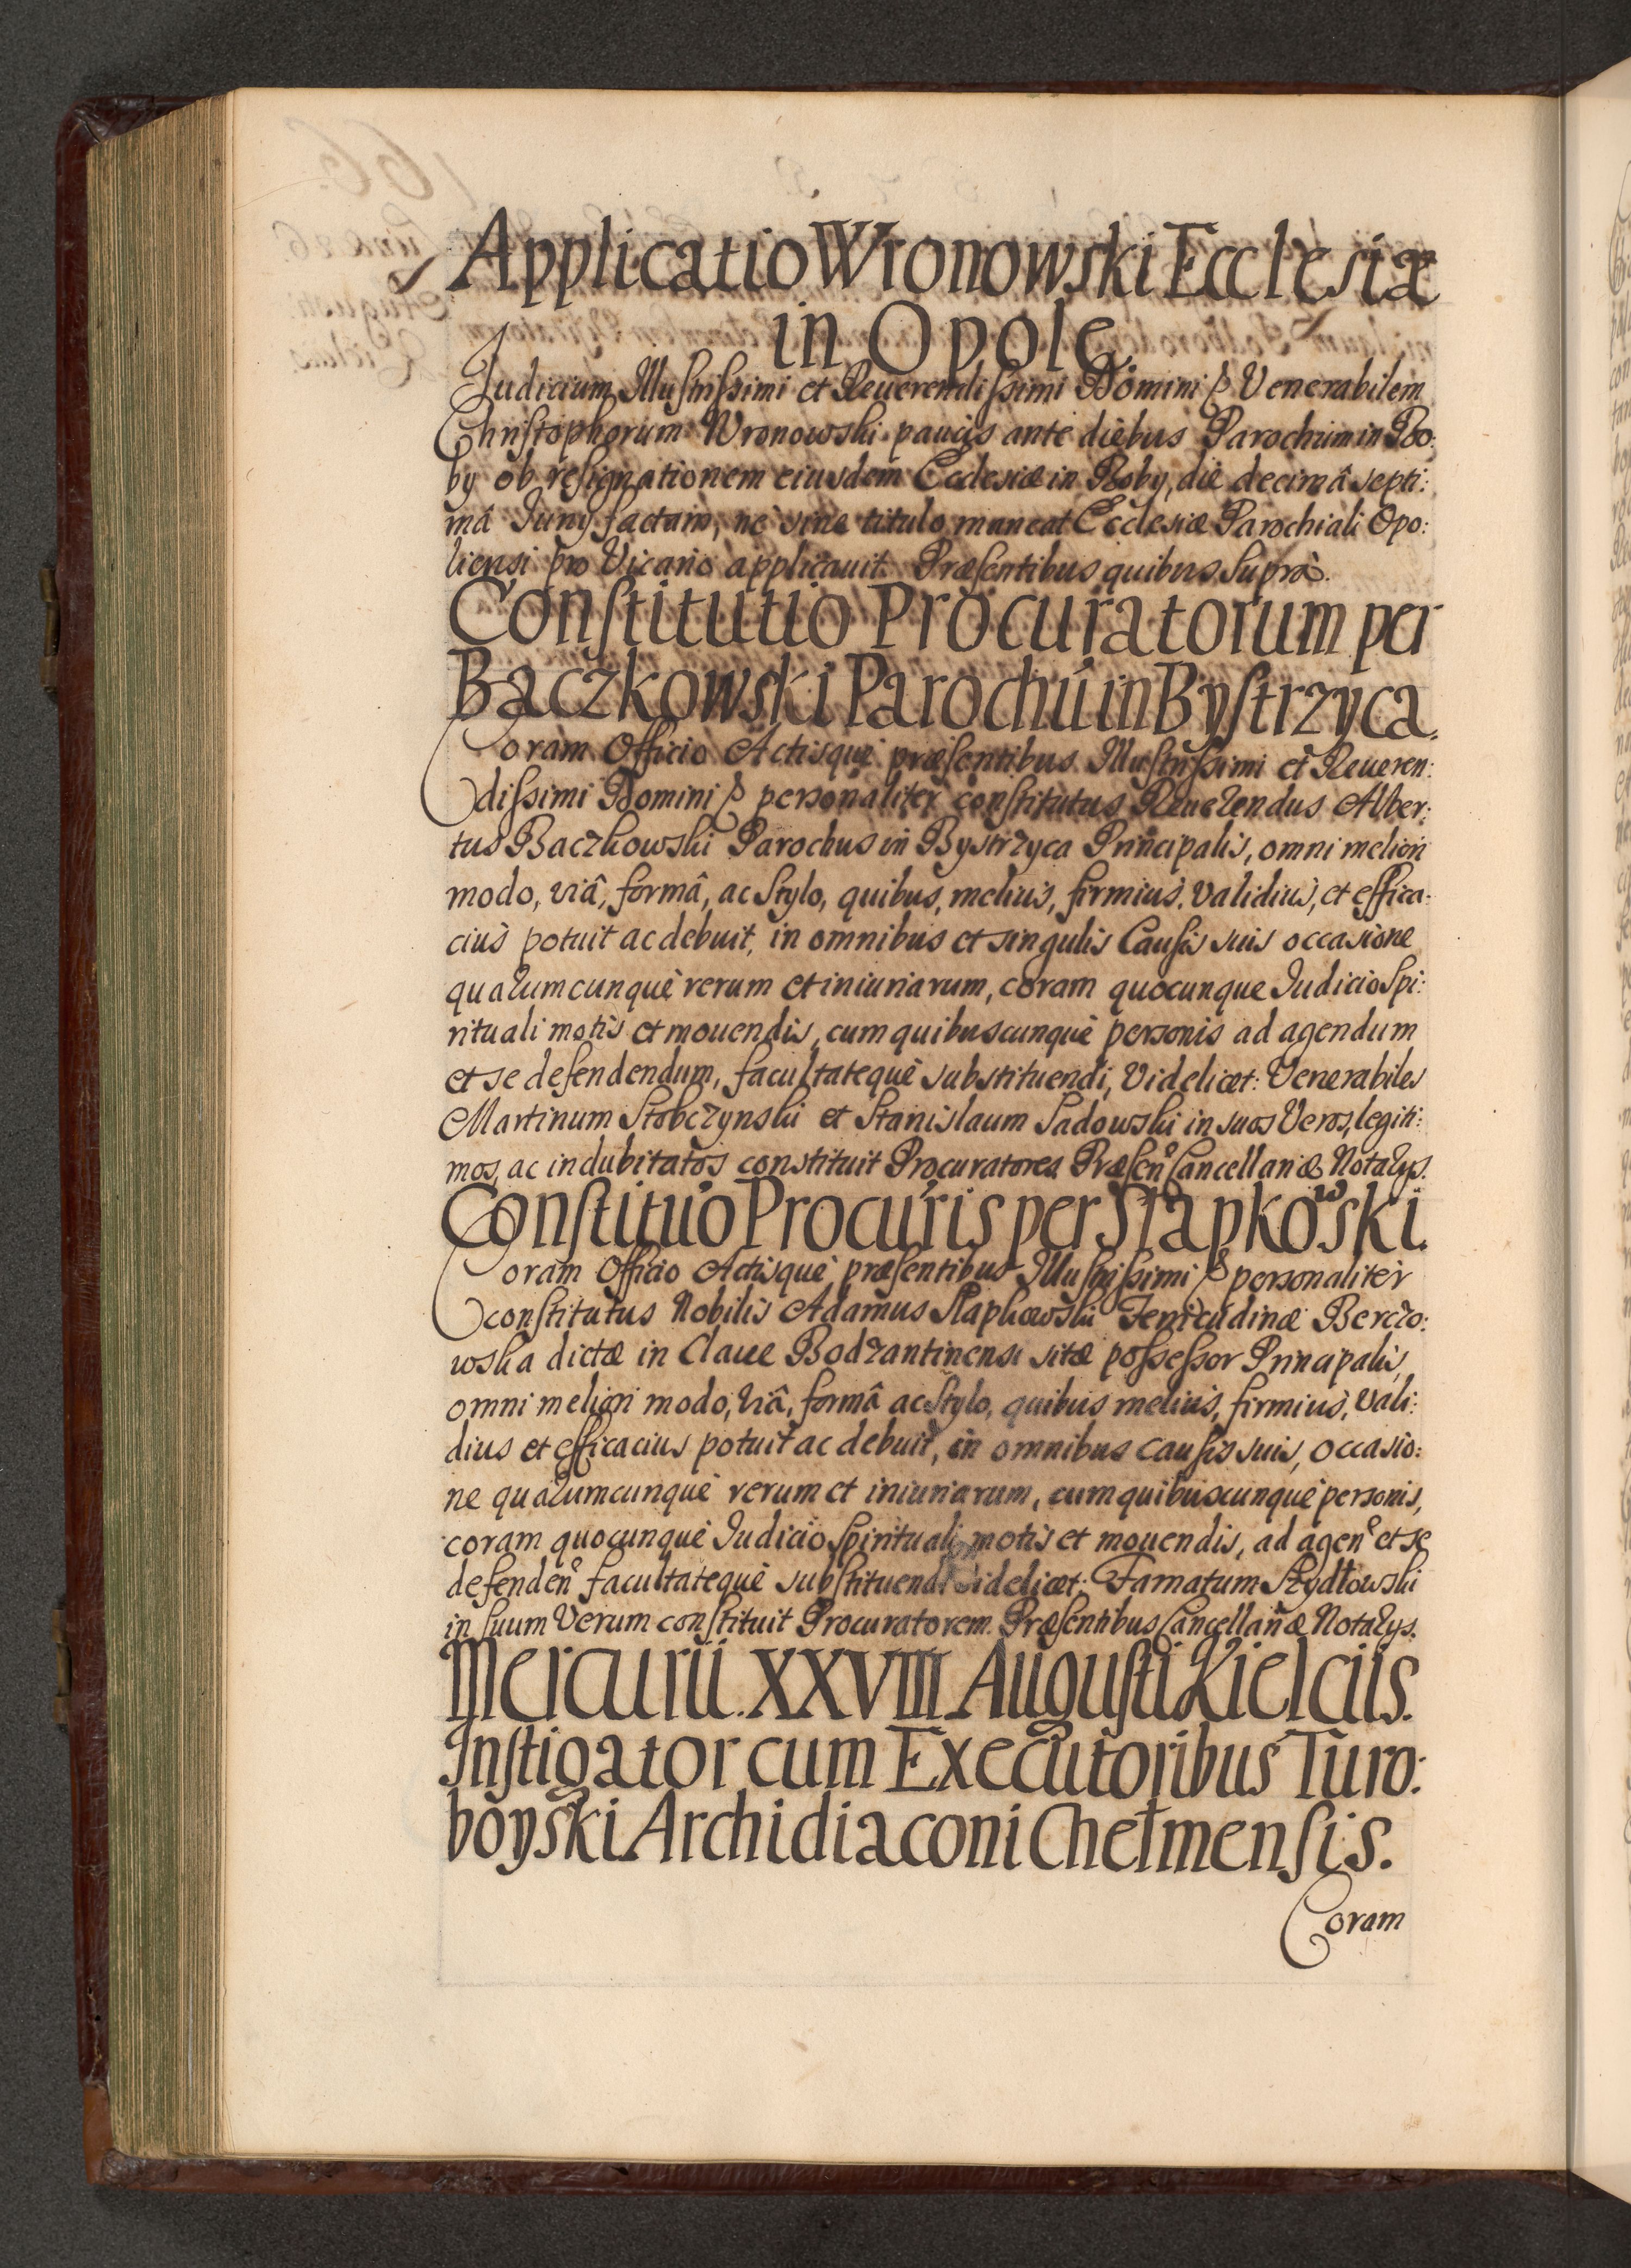 Applicatio Wronowski Ecclesiæ
in Opole
Iudicium Illustrissimi et Reuerendissimi Domini & Venerabilem
Christophorum Wronowski paucis ante diebus Parochum in Bo:
by ob resignationem eiusdem Ecclesiæ in Boby, die decimâ septi:
mâ Iunÿ factam, nè sine titulo maneat Ecclesiæ Parochiali Opo:
liensi pro Vicario applicauit. Præsentibus quibus Suprà.
Constitutio Procuratorum per
Bączkowski Parochũ in Bystrzyca.
Coram Officio Actisquè præsentibus Illustrissimi et Reueren:
dissimi Domini & personalitèr constitutus Reuerendus Alber:
tus Bączkowski Parochus in Bystrzyca Principalis, omni meliori
modo, viâ, formâ, ac Stylo, quibus, meliùs, firmiùs, validiùs, et effica:
ciùs potuit ac debuit, in omnibus et singulis Causis suis occasione
quarumcunquè rerum et iniuriarum, coram quocunque Iudicio Spi:
rituali motis et mouendis, cum quibuscunquè personis ad agendum
et se defendendum, facultatequè substituendi, Videlicet: Venerabiles
Martinum Stobczynski et Stanislaum Sadowski in suos Veros, legiti:
mos, ac indubitatos constituit Procuratores Præsen͠ Cancellariæ Notarÿs.
Constituo Procuris per Słapkowski.
Coram Officio Actisquè præsentibus Illustrissimi & personalitèr
constitutus Nobilis Adamus Słapkowski Ferricudinæ Berczo:
wska dictæ in Claue Bodzantinensi sitæ possessor Principalis,
omni meliori modo, viâ, formâ ac Stylo, quibus meliùs, firmiùs, Vali:
dius et efficacius potuit ac debuit, in omnibus causis suis, occasio:
ne quarumcunquè rerum et iniuriarum, cum quibuscunquè personis,
coram quocunquè Iudicio Spirituali motis et mouendis, ad agen͠ et se
defenden͠ facultatequè substituendi Videlicet: Famatum Szydłowski
in suum Verum constituit Procuratorem. Præsentibus Cancellariæ Notarÿs.
Mercurii. XXVIII Augusti Kielciis.
Instigator cum Executoribus Turo:
boyski Archidiaconi Chełmensis.
Coram